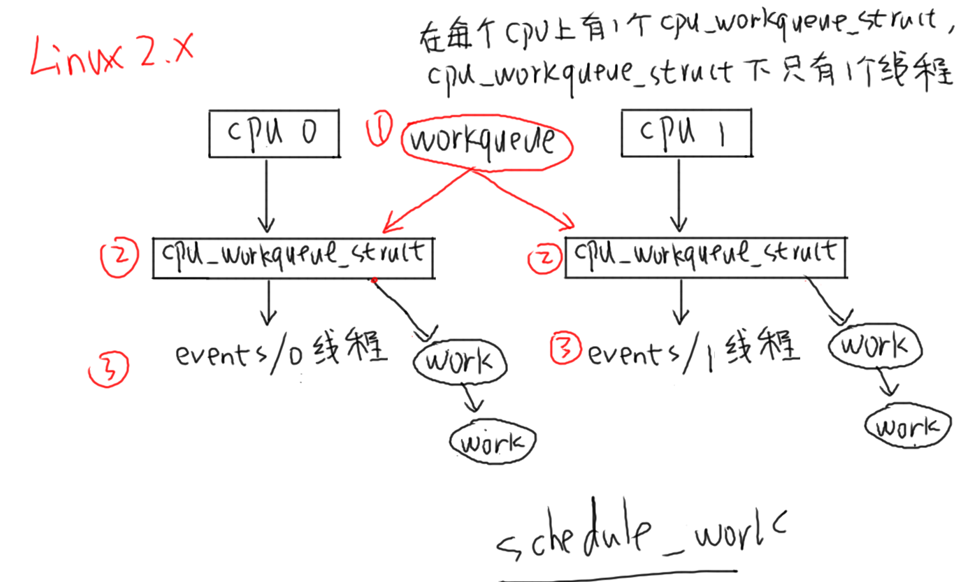 Linux 2.x
在每个CPU上有1个cpu_workqueue_struct,
cpu_workqueue_struct下只有1个线程
cpu 0
① workqueue
cpu 1
② cpu_workqueue_struct
② cpu_workqueue_struct
③ events/0线程
work
work
③ events/1线程
work
work
schedule_work